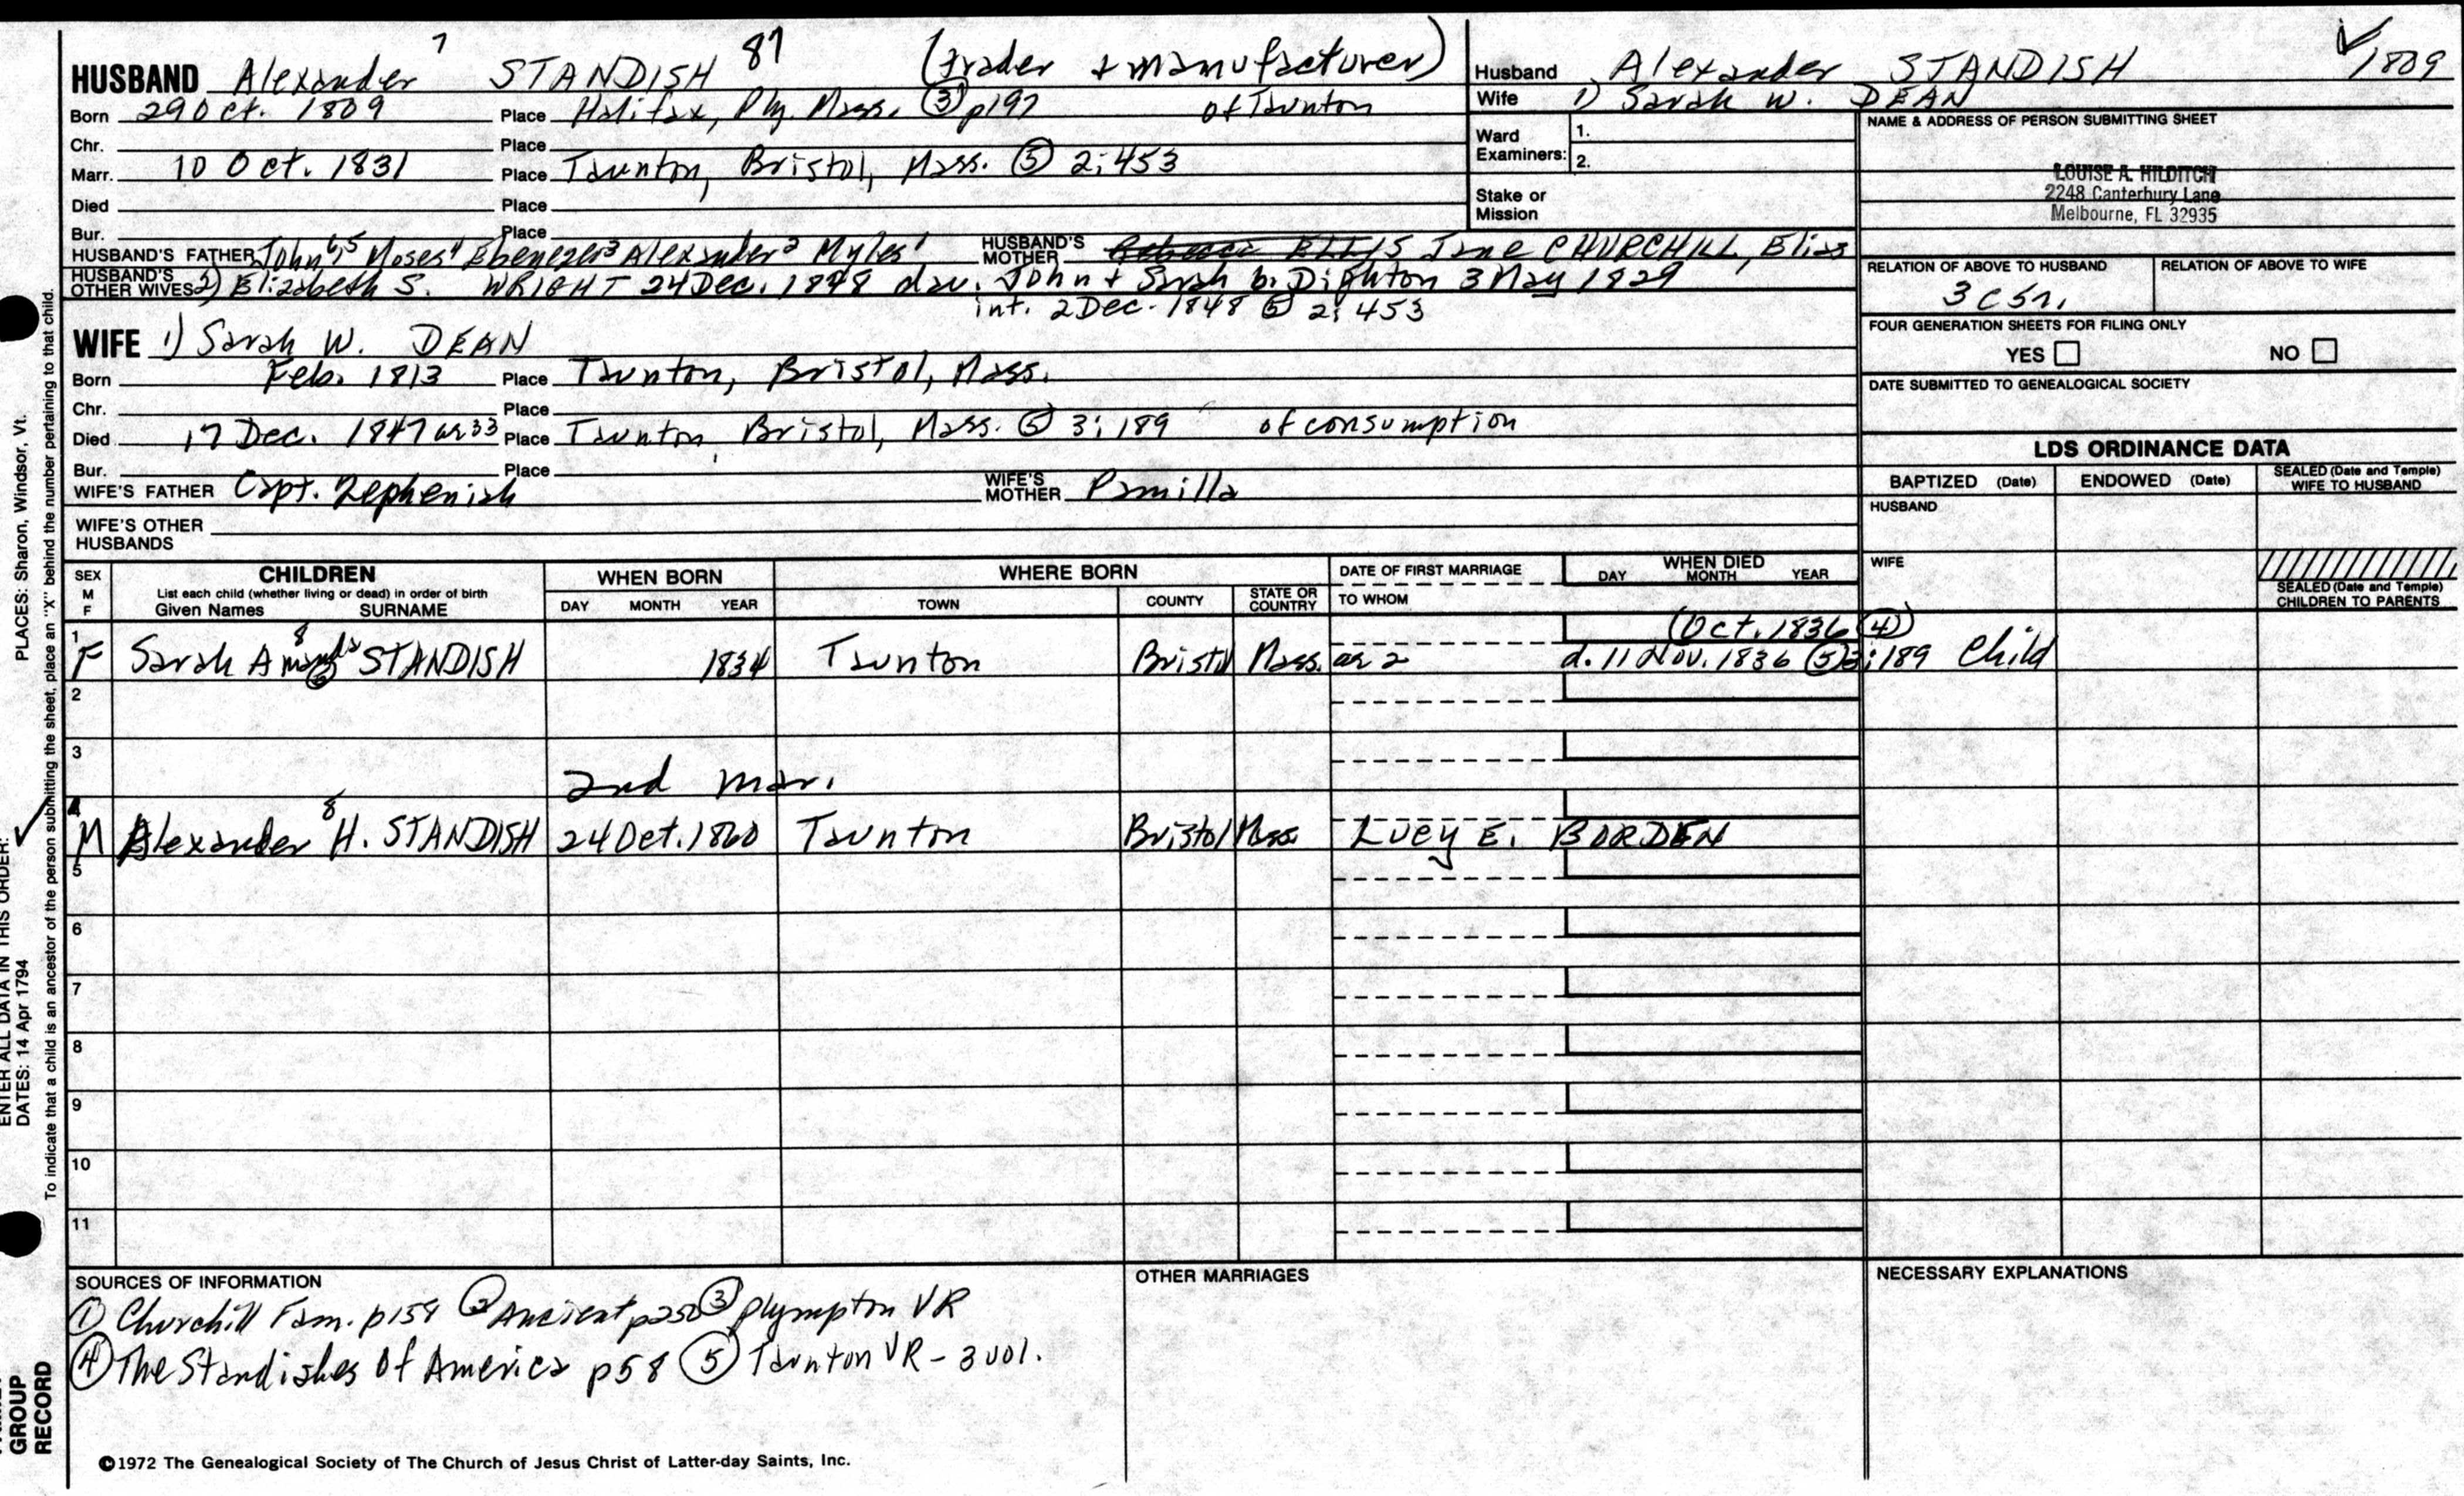 HUSBAND Alexander 7 STANDISH 87 (trader + manufacturer)
Born 29 Oct. 1809 Place Halifax, Ply. Mass. (3) p197 of Taunton
Chr. Place
Marr. 10 Oct. 1831 Place Taunton, Bristol, Mass. (5) 2:453
Died Place
Bur. Place
HUSBAND'S FATHER John 6,5 Moses 4 Ebenezer 3 Alexander 2 Myles 1 HUSBAND'S MOTHER Rebecca ELLIS Jane CHURCHILL, Elias
HUSBAND'S OTHER WIVES 2) Elizabeth S. WRIGHT 24 Dec. 1848 dau. John + Sarah b. Dighton 3 May 1829
int. 2 Dec. 1848 (5) 2:453
WIFE 1) Sarah W. DEAN
Born Feb. 1813 Place Taunton, Bristol, Mass.
Chr. Place
Died 17 Dec. 1847 ae 33 Place Taunton, Bristol, Mass. (5) 3:189 of consumption
Bur. Place
WIFE'S FATHER Capt. Zepheniah WIFE'S MOTHER Pamilla
WIFE'S OTHER HUSBANDS
Husband Alexander STANDISH 1809
Wife 1) Sarah W. DEAN
Ward Examiners: 1.
2.
Stake or Mission
NAME & ADDRESS OF PERSON SUBMITTING SHEET
LOUISE A. HILDITCH
2248 Canterbury Lane
Melbourne, FL 32935
RELATION OF ABOVE TO HUSBAND RELATION OF ABOVE TO WIFE
3 c 5 r.
FOUR GENERATION SHEETS FOR FILING ONLY
YES NO
DATE SUBMITTED TO GENEALOGICAL SOCIETY
LDS ORDINANCE DATA
BAPTIZED (Date) ENDOWED (Date) SEALED (Date and Temple) WIFE TO HUSBAND
HUSBAND
WIFE
SEALED (Date and Temple) CHILDREN TO PARENTS
SEX M F CHILDREN WHEN BORN WHERE BORN DATE OF FIRST MARRIAGE WHEN DIED
List each child (whether living or dead) in order of birth
Given Names SURNAME DAY MONTH YEAR TOWN COUNTY STATE OR COUNTRY TO WHOM DAY MONTH YEAR
(Oct. 1836 (4))
1 F Sarah Amanda 8 STANDISH 1834 Taunton Bristol Mass. ae 2 d. 11 Nov. 1836 (5) 3:189 Child
2
3
2nd mar.
4 M Alexander 8 H. STANDISH 24 Oct. 1860 Taunton Bristol Mass Lucy E. BORDEN
5
6
7
8
9
10
11
SOURCES OF INFORMATION
(1) Churchill Fam. p158 (2) Ancient p250 (3) Plympton VR
(4) The Standishes Of America p58 (5) Taunton VR - 3 vol.
OTHER MARRIAGES
NECESSARY EXPLANATIONS
©1972 The Genealogical Society of The Church of Jesus Christ of Latter-day Saints, Inc.
PLACES: Sharon, Windsor, Vt.
To indicate that a child is an ancestor of the person submitting the sheet, place an "X" behind the number pertaining to that child.
ENTER ALL DATA IN THIS ORDER:
DATES: 14 Apr 1794
GROUP
RECORD